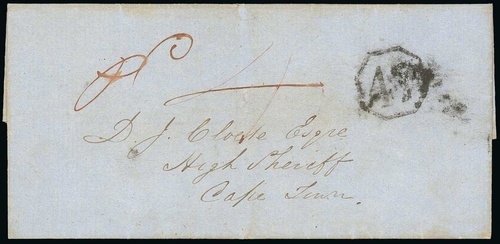 4
D. J. Cloete Esqre
High Sheriff
Cape Town.